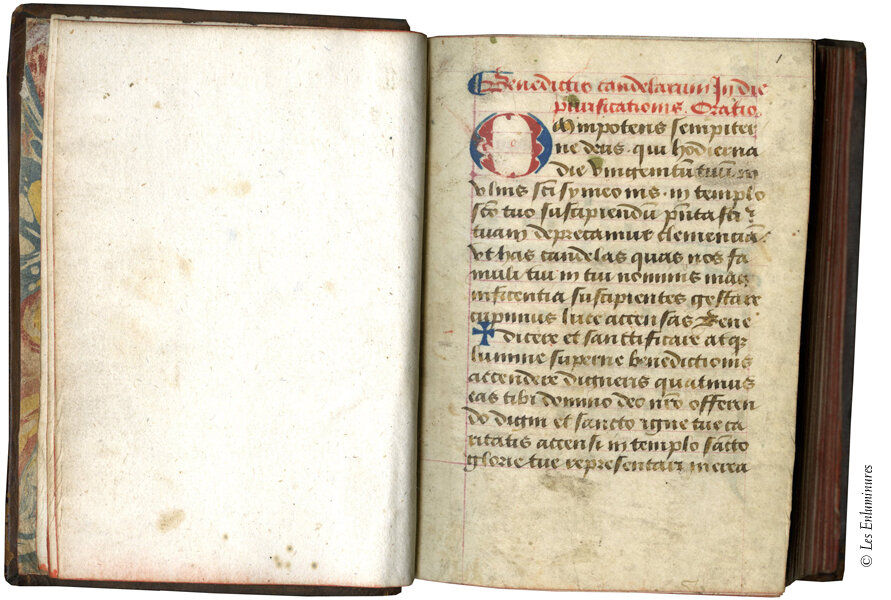 1
Benedictio candelarum In die
purificationis. Oratio
Omnipotens sempiter
ne deus. qui hodierna
die vnigenitū tuum in
vlnis sci symeonis. in templo
sco tuo suscipiendū
tuam deprecamur clemenciā.
vt has candelas quas nos fa
muli tui in tui nominis mag
nificentia suscipientes gestare
cupimus luce accensas Bene
✠ dicere et sanctificare atqꝫ
lumine superne benedictionis
accendere digneris quatinus
eas tibi domino deo nrō offeren
do digni et sancto igne tue ca
ritatis accensi in templo sancto
glorie tue
© Les Enluminures